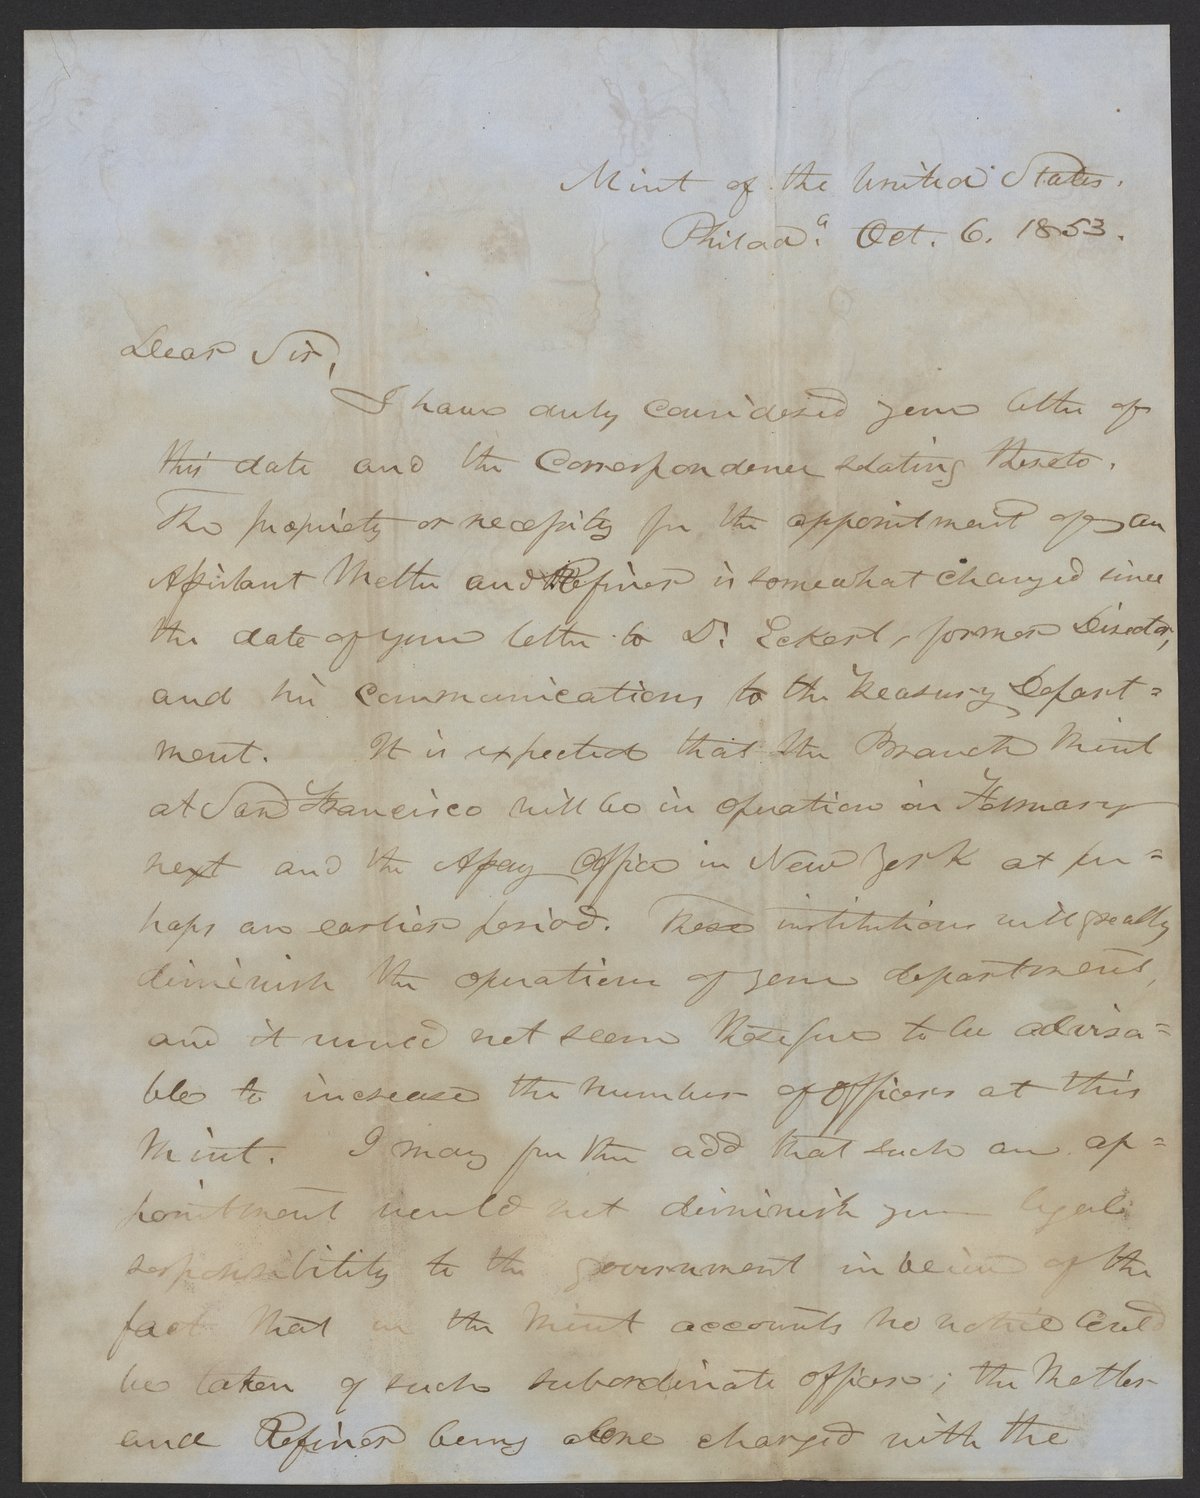 Mint of the United States.
Philad.a Oct. 6. 1853.
Dear Sir,
I have duly considered your letter of
this date and the correspondence relating thereto.
The propriety or necessity for the appointment of an
Assistant Melter and Refiner is somewhat changed since
the date of your letter to Dr. Eckert, former Director,
and his communications to the Treasury Depart=
ment. It is expected that the Branch Mint
at San Francisco will be in operation in February
next and the Assay Office in New York at per=
haps an earlier period. These institutions will greatly
diminish the operations of your department,
and it would not seem therefore to be advisa=
ble to increase the number of officers at this
Mint. I may further add that such an ap=
pointment would not diminish your legal
responsibility to the government in view of the
fact that in the Mint accounts no notice could
be taken of such subordinate officer; the Melter
and Refiner being alone charged with the